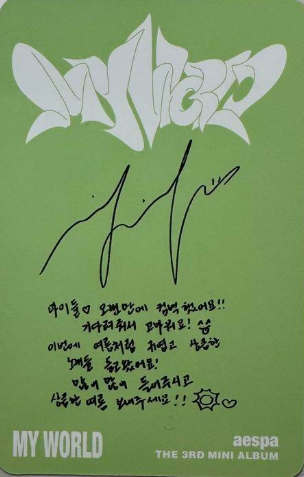 MY WORLD
마이들♡ 오랜만에 컴백했어요!!
기다려줘서 고마워요!
이번에 여름처럼 뜨겁고 상큼한
노래들 들고왔어요!
많이 많이 들어주시고
상큼한 여름 보내주세요!!
MY WORLD
aespa
THE 3RD MINI ALBUM